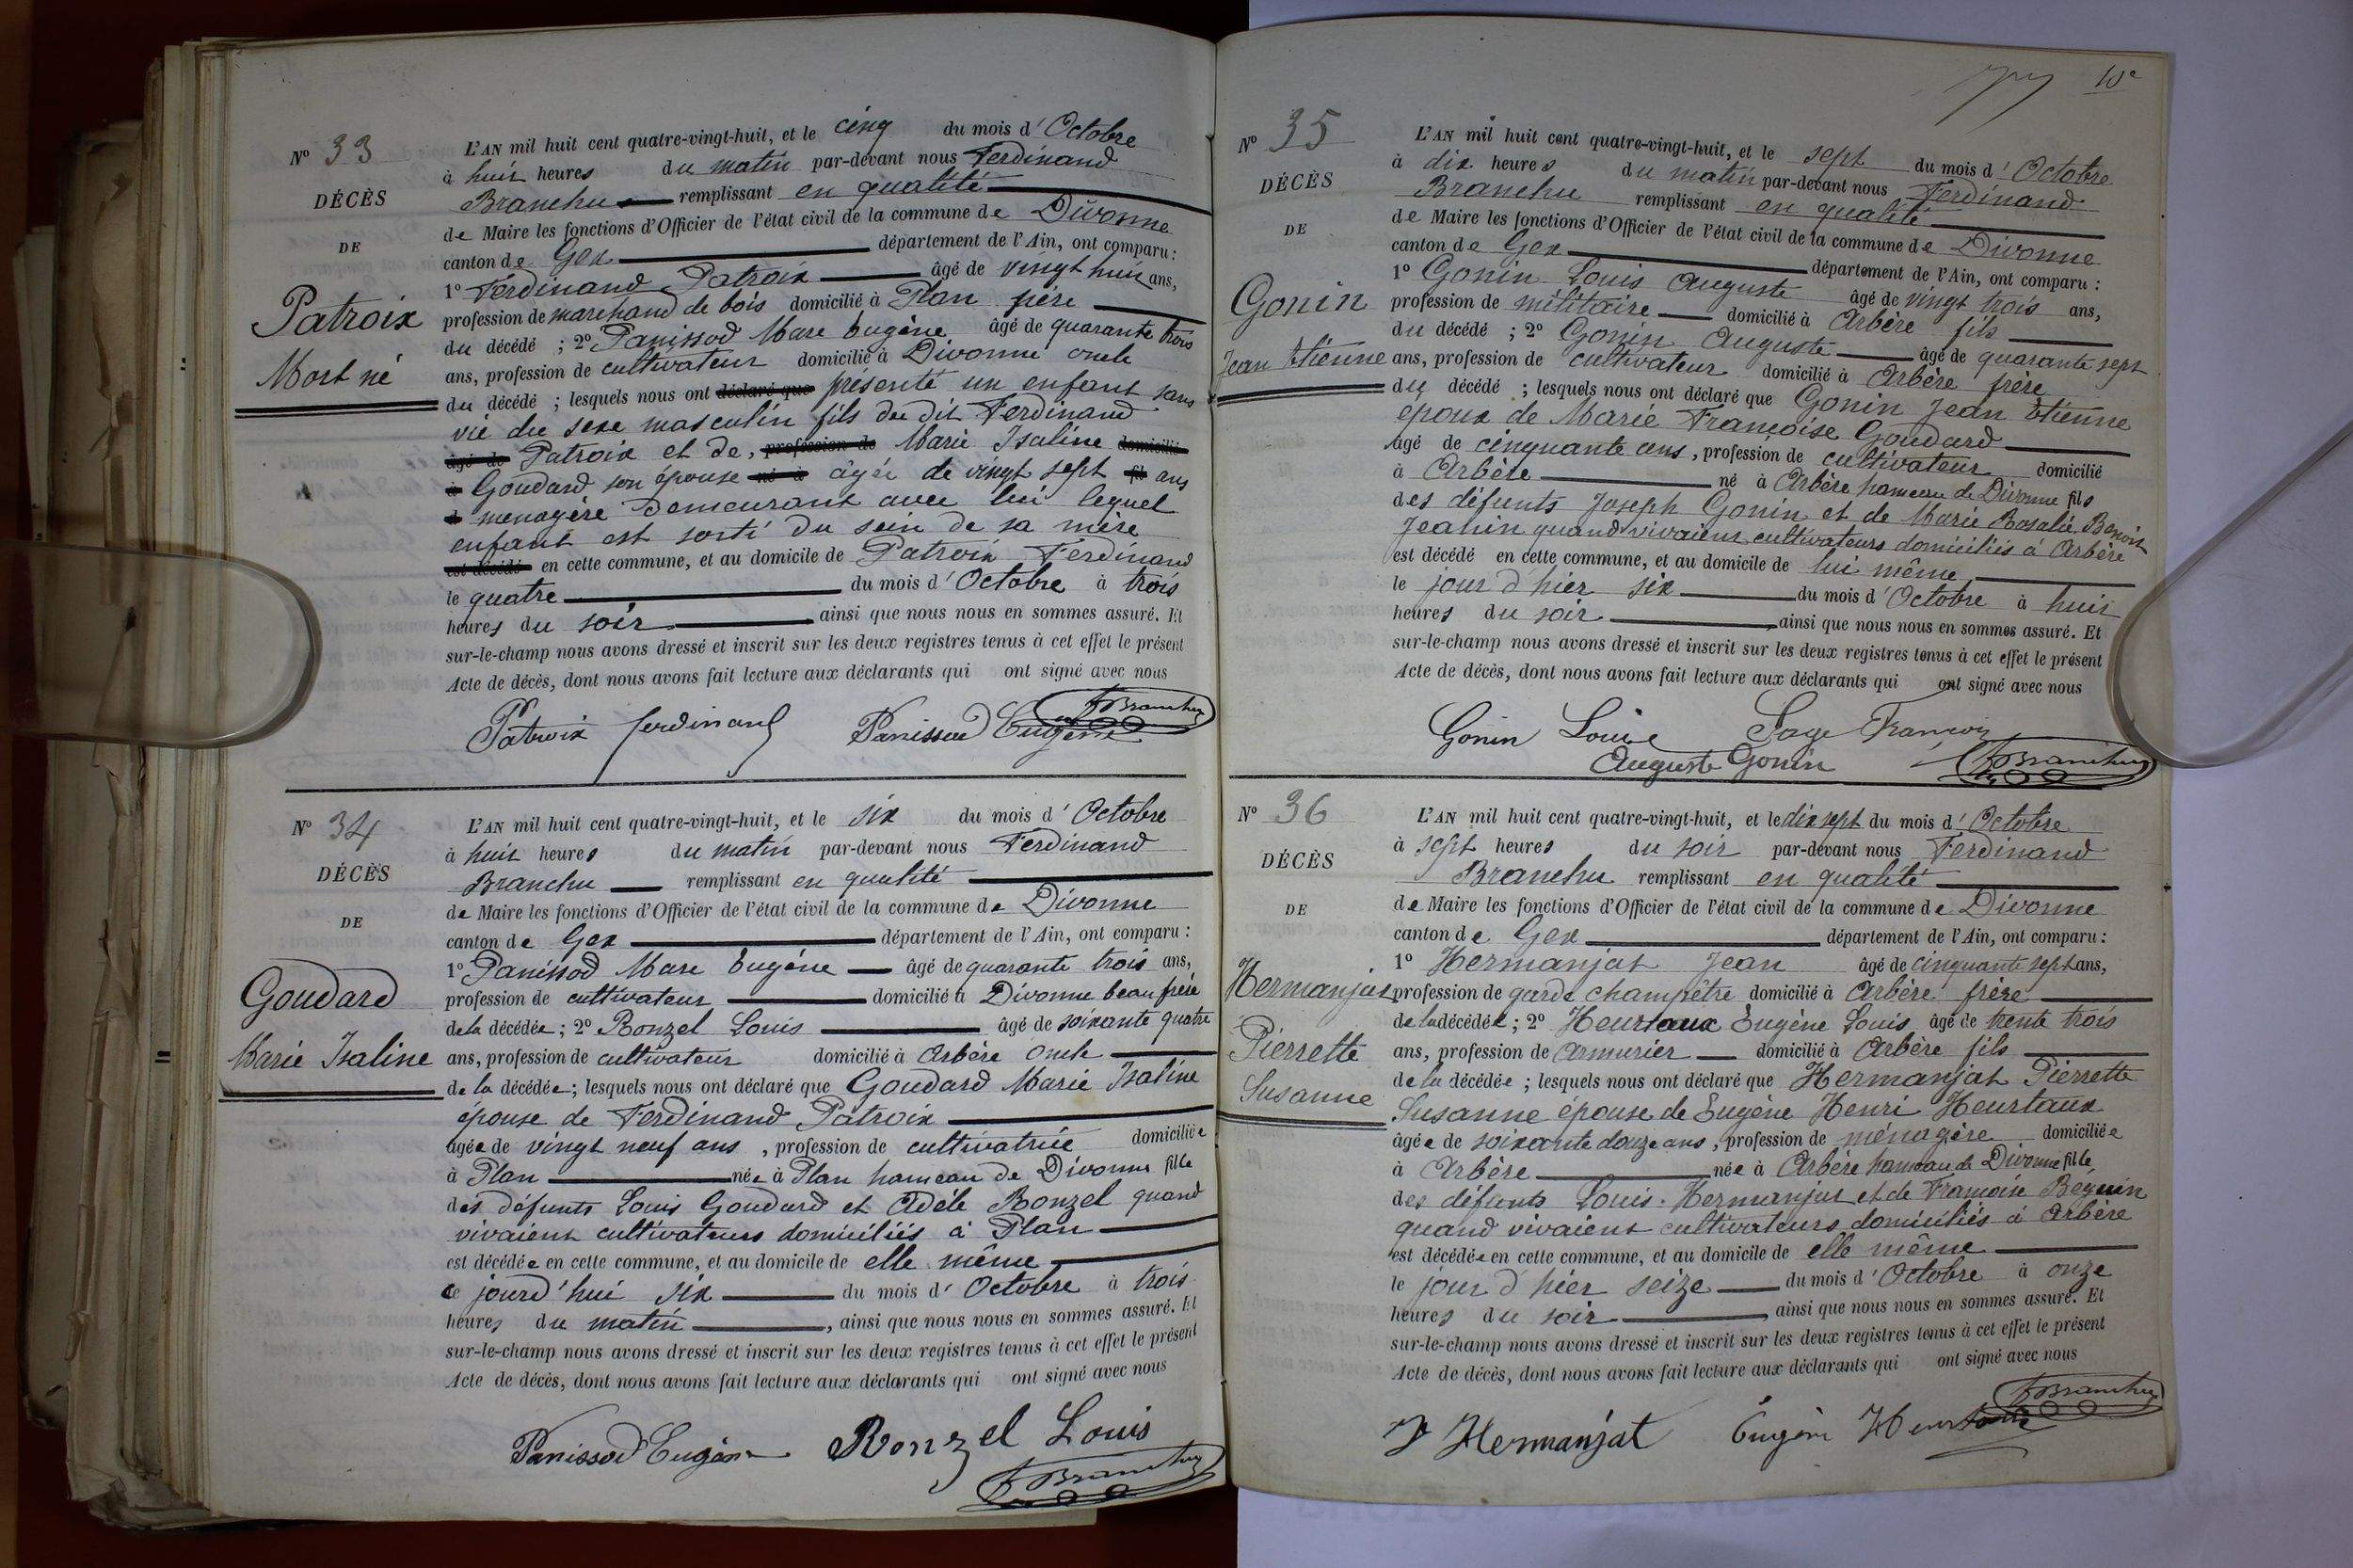 N° 33
DÉCÈS
DE
Patroix
Mort né
L'AN mil huit cent quatre-vingt-huit, et le cinq du mois d'Octobre
à huit heures du matin par-devant nous Ferdinand
Branchu remplissant en qualité
de Maire les fonctions d'Officier de l'état civil de la commune de Divonne
canton de Gex département de l'Ain, ont comparu :
1° Ferdinand Patroix âgé de vingt huit ans,
profession de marchand de bois domicilié à Plan père
du décédé ; 2° Panissod Marc Eugène âgé de quarante trois
ans, profession de cultivateur domicilié à Divonne oncle
du décédé ; lesquels nous ont déclaré que présenté un enfant sans
vie du sexe masculin fils du dit Ferdinand
âgé de Patroix et de, profession de Marie Isaline domicilié
à Goudard son épouse né à âgée de vingt sept fil ans
d menagère demeurant avec lui lequel
enfant est sorti du sein de sa mère
est décédé en cette commune, et au domicile de Patroix Ferdinand
le quatre du mois d'Octobre à trois
heures du soir ainsi que nous nous en sommes assuré. Et
sur-le-champ nous avons dressé et inscrit sur les deux registres tenus à cet effet le présent
Acte de décès, dont nous avons fait lecture aux déclarants qui ont signé avec nous
Patroix ferdinand Panissod Eugène FBranchu
N° 34
DÉCÈS
DE
Goudard
Marie Isaline
L'AN mil huit cent quatre-vingt-huit, et le six du mois d'Octobre
à huit heures du matin par-devant nous Ferdinand
Branchu remplissant en qualité
de Maire les fonctions d'Officier de l'état civil de la commune de Divonne
canton de Gex département de l'Ain, ont comparu :
1° Panissod Marc Eugène âgé de quarante trois ans,
profession de cultivateur domicilié à Divonne beau frère
de la décédée ; 2° Ronzel Louis âgé de soixante quatre
ans, profession de cultivateur domicilié à Arbère oncle
de la décédée ; lesquels nous ont déclaré que Goudard Marie Isaline
épouse de Ferdinand Patroix
agée de vingt neuf ans, profession de cultivatrice domiciliée
à Plan née à Plan hameau de Divonne fille
des défunts Louis Goudard et Adèle Ronzel quand
vivaient cultivateurs domiciliés à Plan
est décédée en cette commune, et au domicile de elle même
ce jourd'hui six du mois d'Octobre à trois
heures du matin, ainsi que nous nous en sommes assuré. Et
sur-le-champ nous avons dressé et inscrit sur les deux registres tenus à cet effet le présent
Acte de décès, dont nous avons fait lecture aux déclarants qui ont signé avec nous
Panissod Eugène Ronzel Louis
FBranchu
10e
N° 35
DÉCÈS
DE
Gonin
Jean Etienne
L'AN mil huit cent quatre-vingt-huit, et le sept du mois d'Octobre
à dix heures du matin par-devant nous Ferdinand
Branchu remplissant en qualité
de Maire les fonctions d'Officier de l'état civil de la commune de Divonne
canton de Gex département de l'Ain, ont comparu :
1° Gonin Louis Auguste âgé de vingt trois ans,
profession de militaire domicilié à Arbère fils
du décédé ; 2° Gonin Auguste âgé de quarante sept
ans, profession de cultivateur domicilié à Arbère frère
du décédé ; lesquels nous ont déclaré que Gonin Jean Etienne
époux de Marie Françoise Goudard
âgé de cinquante ans, profession de cultivateur domicilié
à Arbère né à Arbère hameau de Divonne fils
des défunts Joseph Gonin et de Marie Rosalie Benoit
Jeahin quand vivaient cultivateurs domiciliés à Arbère
est décédé en cette commune, et au domicile de lui même
le jour d'hier six du mois d'Octobre à huit
heures du soir ainsi que nous nous en sommes assuré. Et
sur-le-champ nous avons dressé et inscrit sur les deux registres tenus à cet effet le présent
Acte de décès, dont nous avons fait lecture aux déclarants qui ont signé avec nous
Gonin Louis Sage François
Auguste Gonin FBranchu
N° 36
DÉCÈS
DE
Hermanjat
Pierrette
Susanne
L'AN mil huit cent quatre-vingt-huit, et le dix sept du mois d'Octobre
à sept heures du soir par-devant nous Ferdinand
Branchu remplissant en qualité
de Maire les fonctions d'Officier de l'état civil de la commune de Divonne
canton de Gex département de l'Ain, ont comparu :
1° Hermanjat Jean âgé de cinquante sept ans,
profession de garde champêtre domicilié à Arbère frère
de la décédée ; 2° Heurtaux Eugène Louis âgé de trente trois
ans, profession de armurier domicilié à Arbère fils
de la décédée ; lesquels nous ont déclaré que Hermanjat Pierrette
Susanne épouse de Eugène Henri Heurtaux
âgée de soixante douze ans, profession de ménagère domiciliée
à Arbère née à Arbère hameau de Divonne fille
des défunts Louis Hermanjat et de Françoise Beguin
quand vivaient cultivateurs domiciliés à Arbère
est décédée en cette commune, et au domicile de elle même
le jour d'hier seize du mois d'Octobre à onze
heures du soir, ainsi que nous nous en sommes assuré. Et
sur-le-champ nous avons dressé et inscrit sur les deux registres tenus à cet effet le présent
Acte de décès, dont nous avons fait lecture aux déclarants qui ont signé avec nous
FBranchu
J Hermanjat Eugène Heurtaux